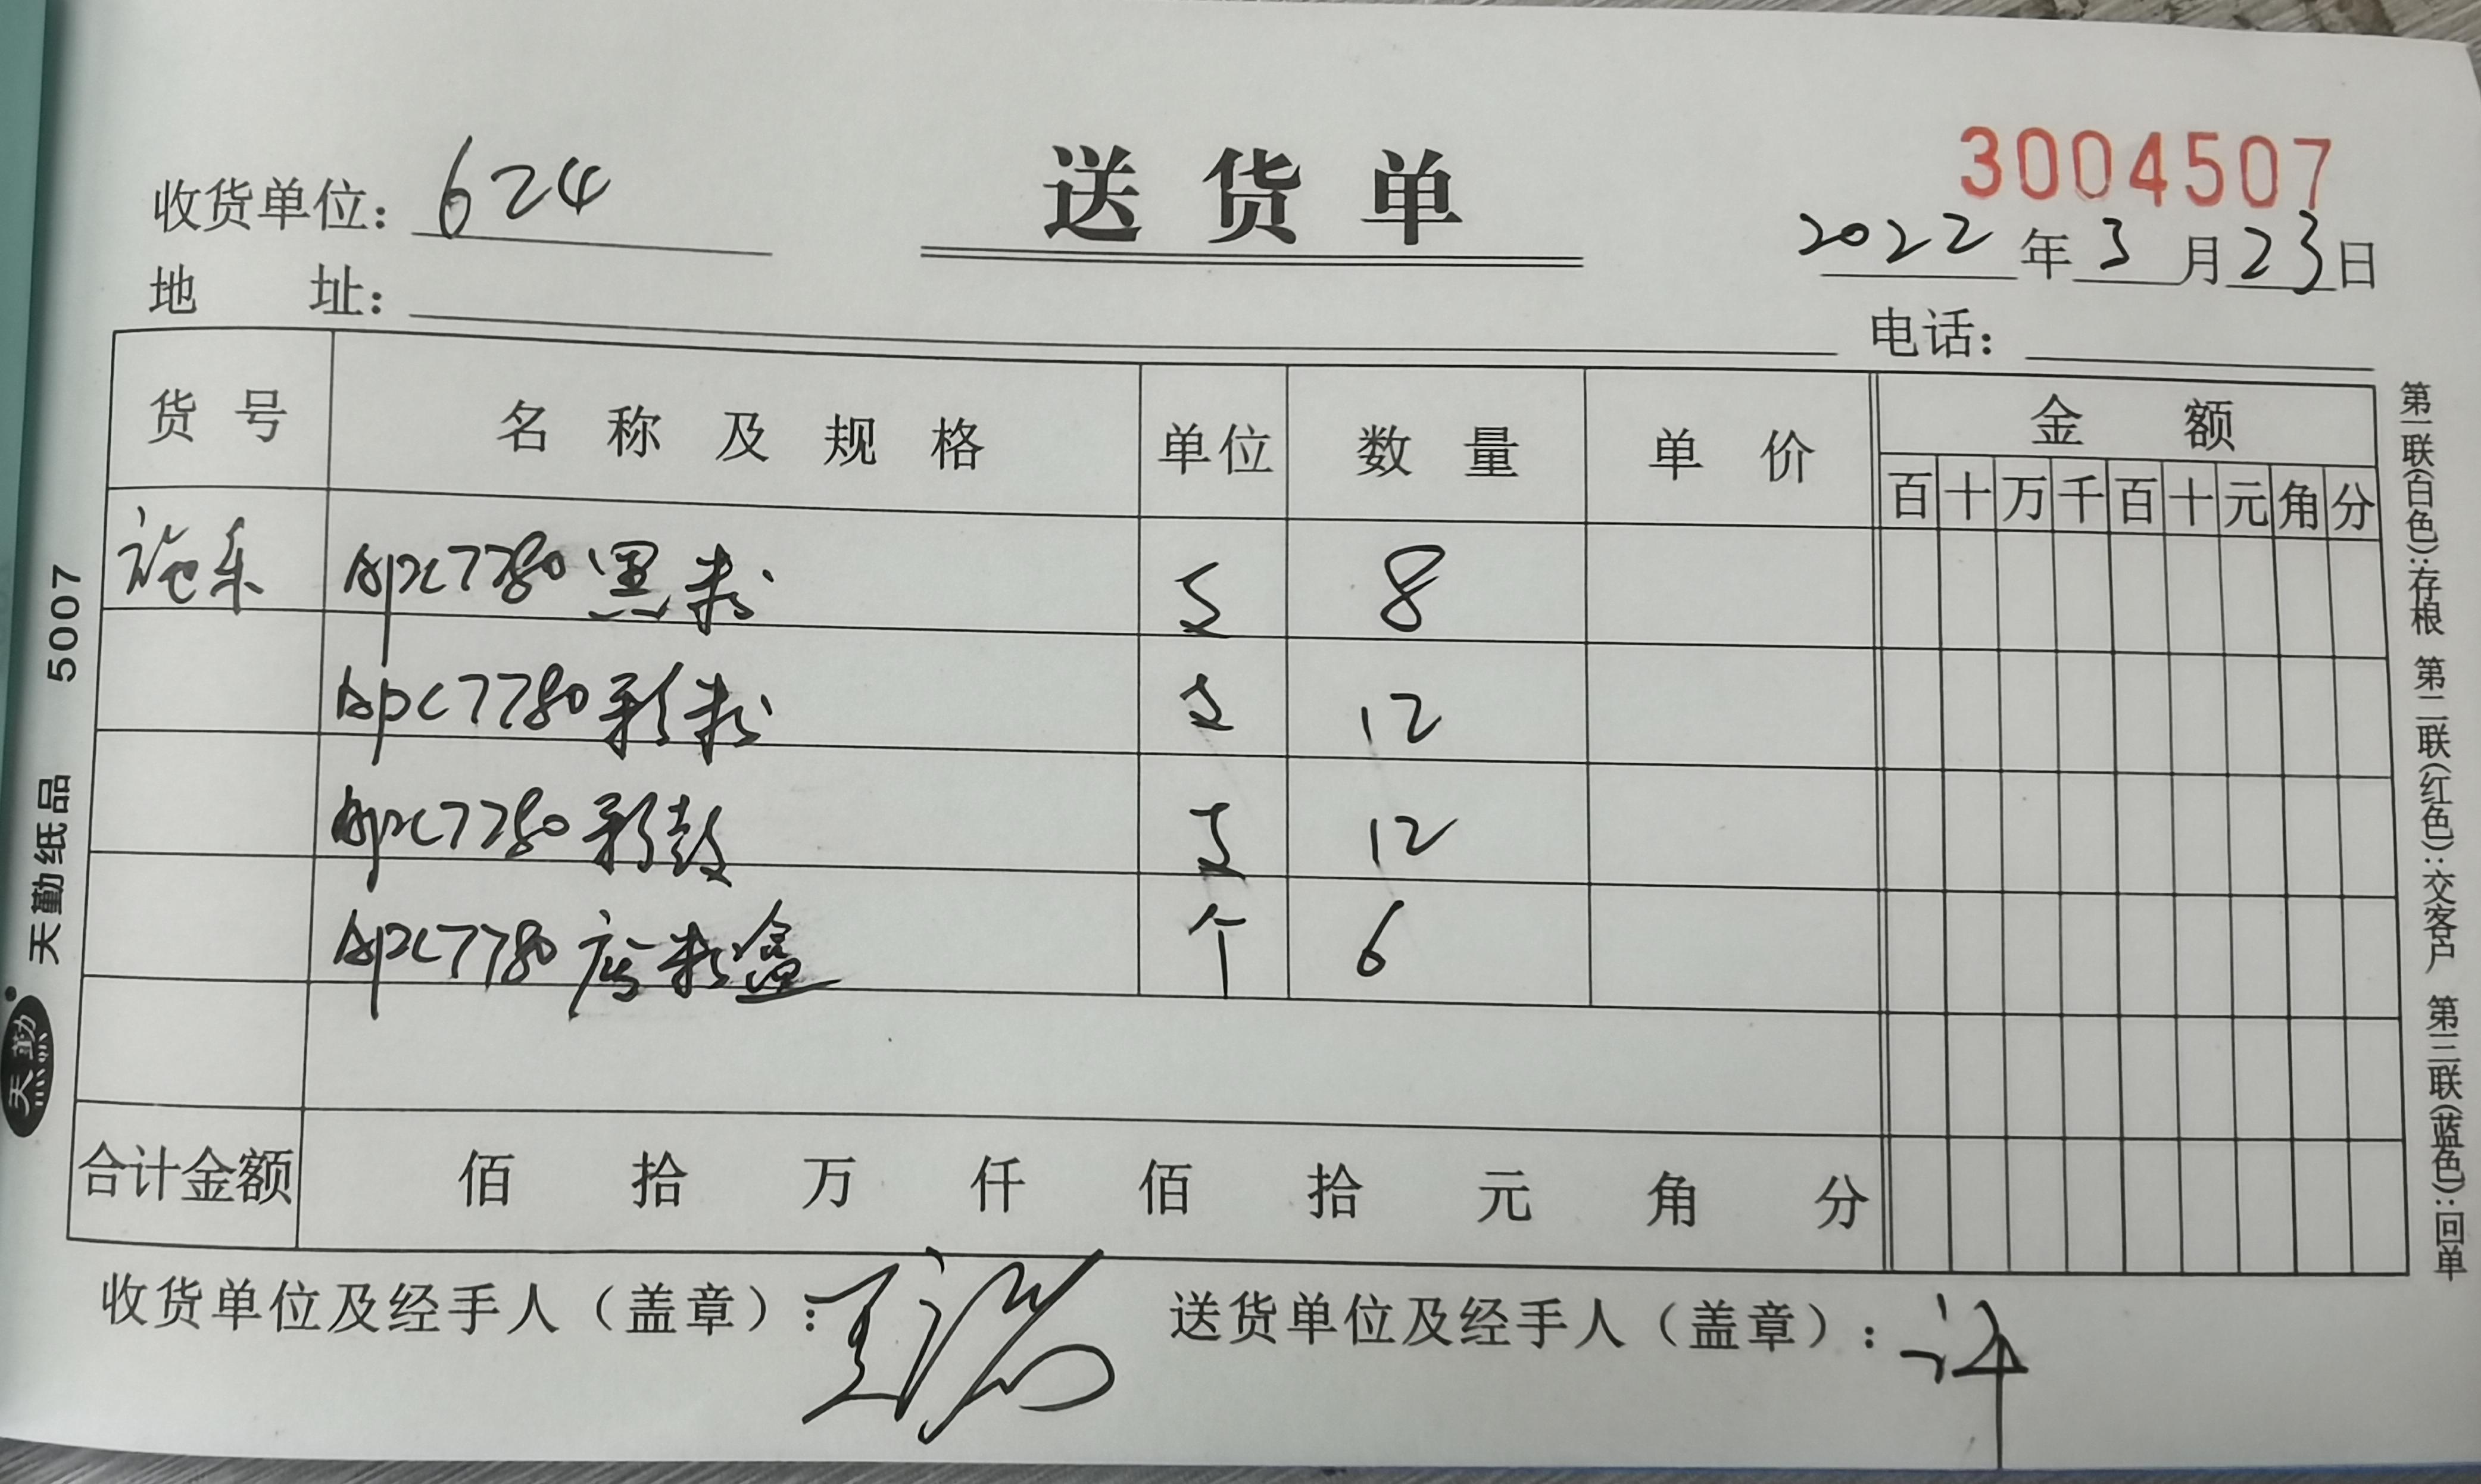 3004507
收货单位：624
送货单
2022年3月23日
地址：
电话：
货号 名称及规格 单位 数量 单价 金额
百 十 万 千 百 十 元 角 分
施乐 Apc7780黑粉 支 8
Apc7780彩粉 支 12
Apc7780彩鼓 支 12
Apc7780废粉盒 个 6
合计金额 佰 拾 万 仟 佰 拾 元 角 分
收货单位及经手人（盖章）：
送货单位及经手人（盖章）：许
第一联（白色）：存根 第二联（红色）：交客户 第三联（蓝色）：回单
天勤 天勤纸品 5007